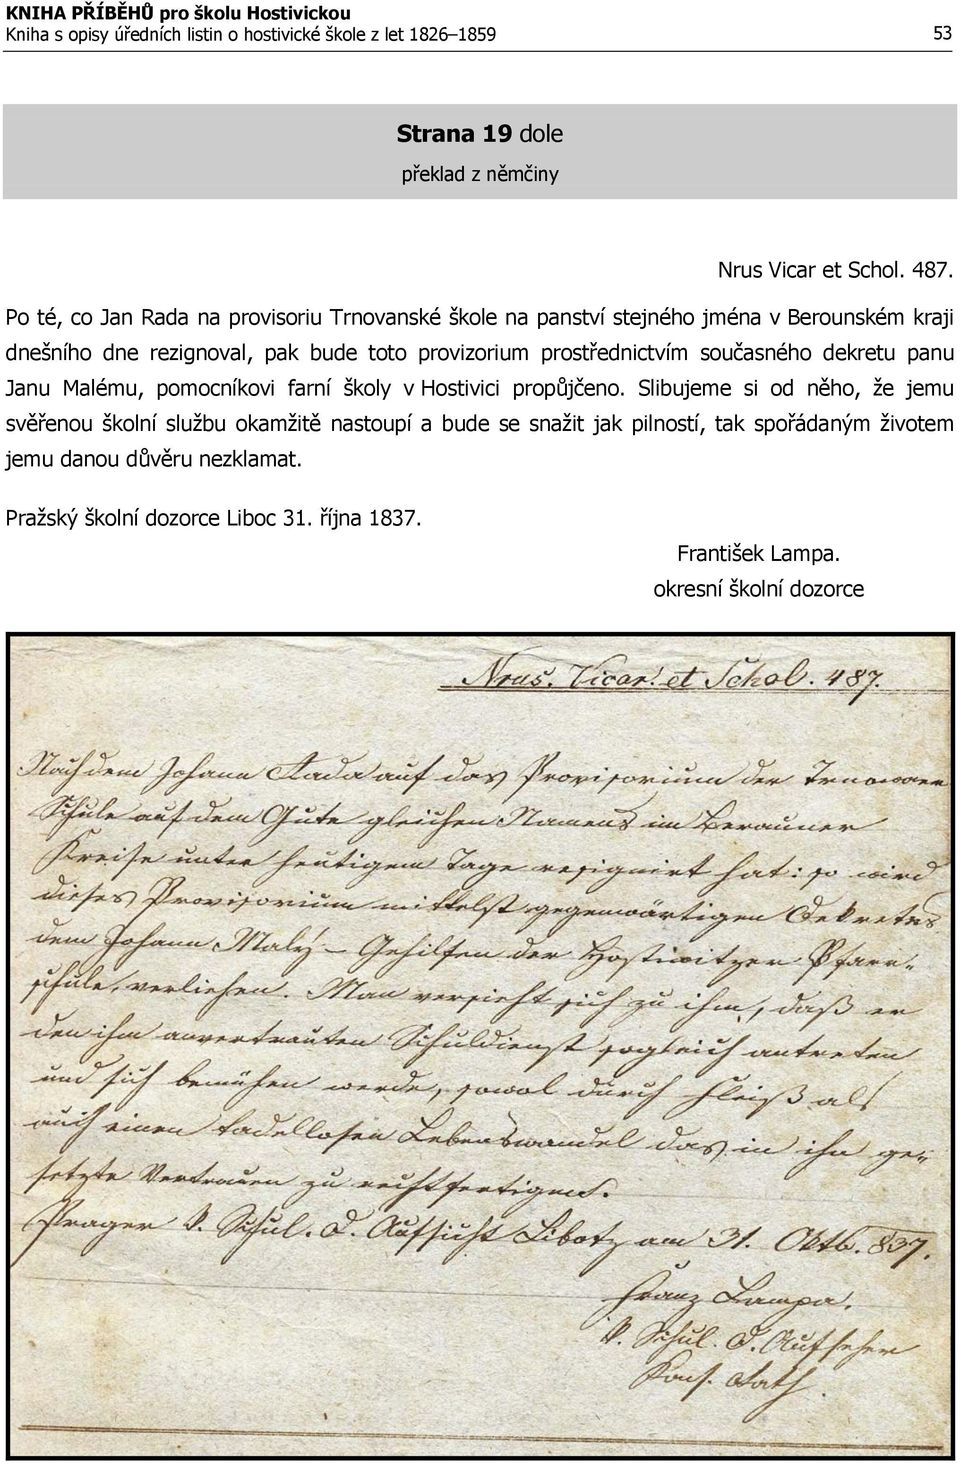 KNIHA PŘÍBĚHŮ pro školu Hostivickou
Kniha s opisy úředních listin o hostivické škole z let 1826–1859 53
Strana 19 dole
překlad z němčiny
Nrus Vicar et Schol. 487.
Po té, co Jan Rada na provisoriu Trnovanské škole na panství stejného jména v Berounském kraji
dnešního dne rezignoval, pak bude toto provizorium prostřednictvím současného dekretu panu
Janu Malému, pomocníkovi farní školy v Hostivici propůjčeno. Slibujeme si od něho, že jemu
svěřenou školní službu okamžitě nastoupí a bude se snažit jak pilností, tak spořádaným životem
jemu danou důvěru nezklamat.
Pražský školní dozorce Liboc 31. října 1837.
František Lampa.
okresní školní dozorce
Nrus. Vicar. et Schol. 487.
Nachdem Johann Rada auf das Provisorium der Trnowaer
Schule auf dem Gute gleichen Namens im Berauner
Kreise unter heutigem Tage resignirt hat: so wird
dieses Provisorium mittelst gegenwärtigen Dekretes
dem Johann Malý – Gehilfen der Hostiwitzer Pfarr-
schule, verliehen. Man versieht sich zu ihm, daß er
den ihm anvertrauten Schuldienst sogleich antreten
und sich bemühen werde, sowol durch Fleiß als
auch einen tadellosen Lebenswandel das in ihn ge-
setzte Vertrauen zu rechtfertigen.
Prager V. Schul. D. Aufsicht Libotz am 31. Oktb. 837.
Franz Lampa.
V. Schul. D. Aufseher
Kons. Rath.